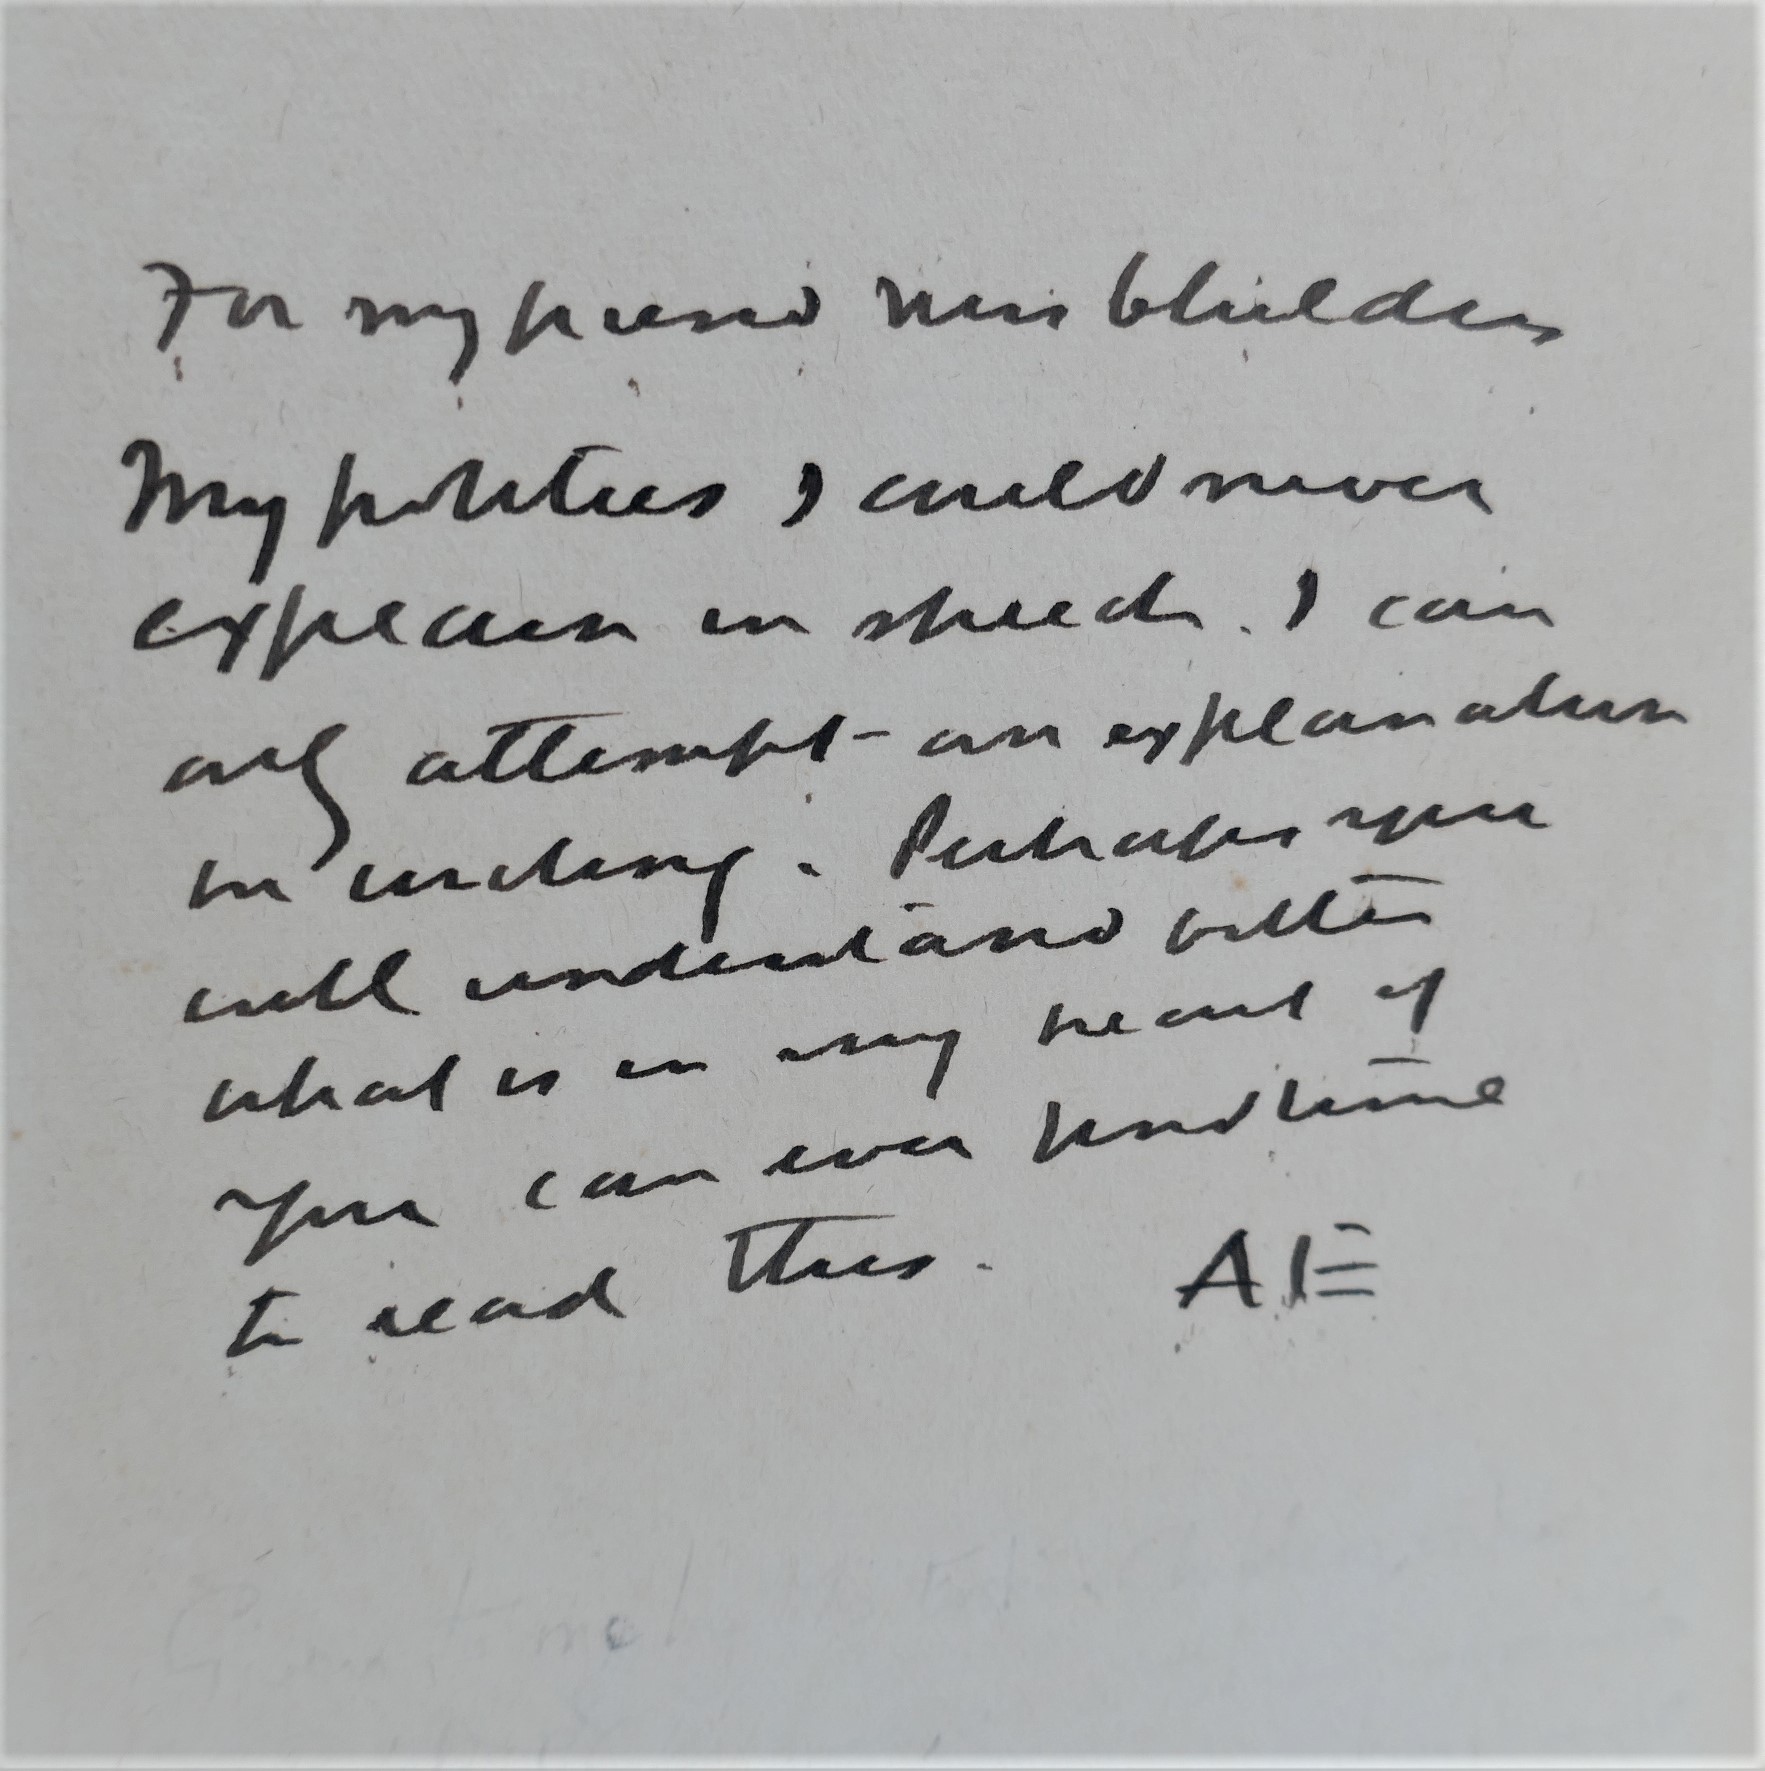 For my friend
My politics I could never
explain in speech. I can
only attempt an explanation
in writing. Perhaps you
will understand better
what is in my heart if
you can ever find time
to read this. AE